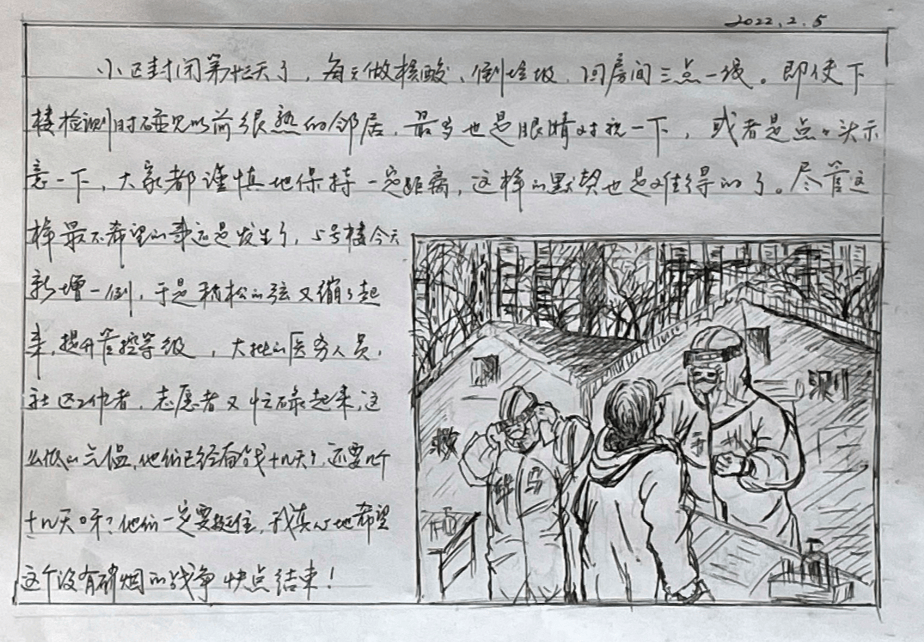 2022.2.5
小区封闭第忙天了，每天做核酸、倒垃圾、回房间三点一线。即使下
楼检测时碰见以前很熟的邻居，最多也是眼睛对视一下，或者是点点头示
意一下，大家都谨慎地保持一定距离，这样的默契也是难得的了。尽管这
样最不希望的事还是发生了，5号楼今天
新增一例，于是稍松的弦又绷了起
来，提升管控等级，大批的医务人员，
社区工作者，志愿者又忙碌起来，这
么低的气温，他们已经奋战十几天了，还要几个
十几天呀？他们一定要挺住，我真心地希望
这个没有硝烟的战争快点结束！
测